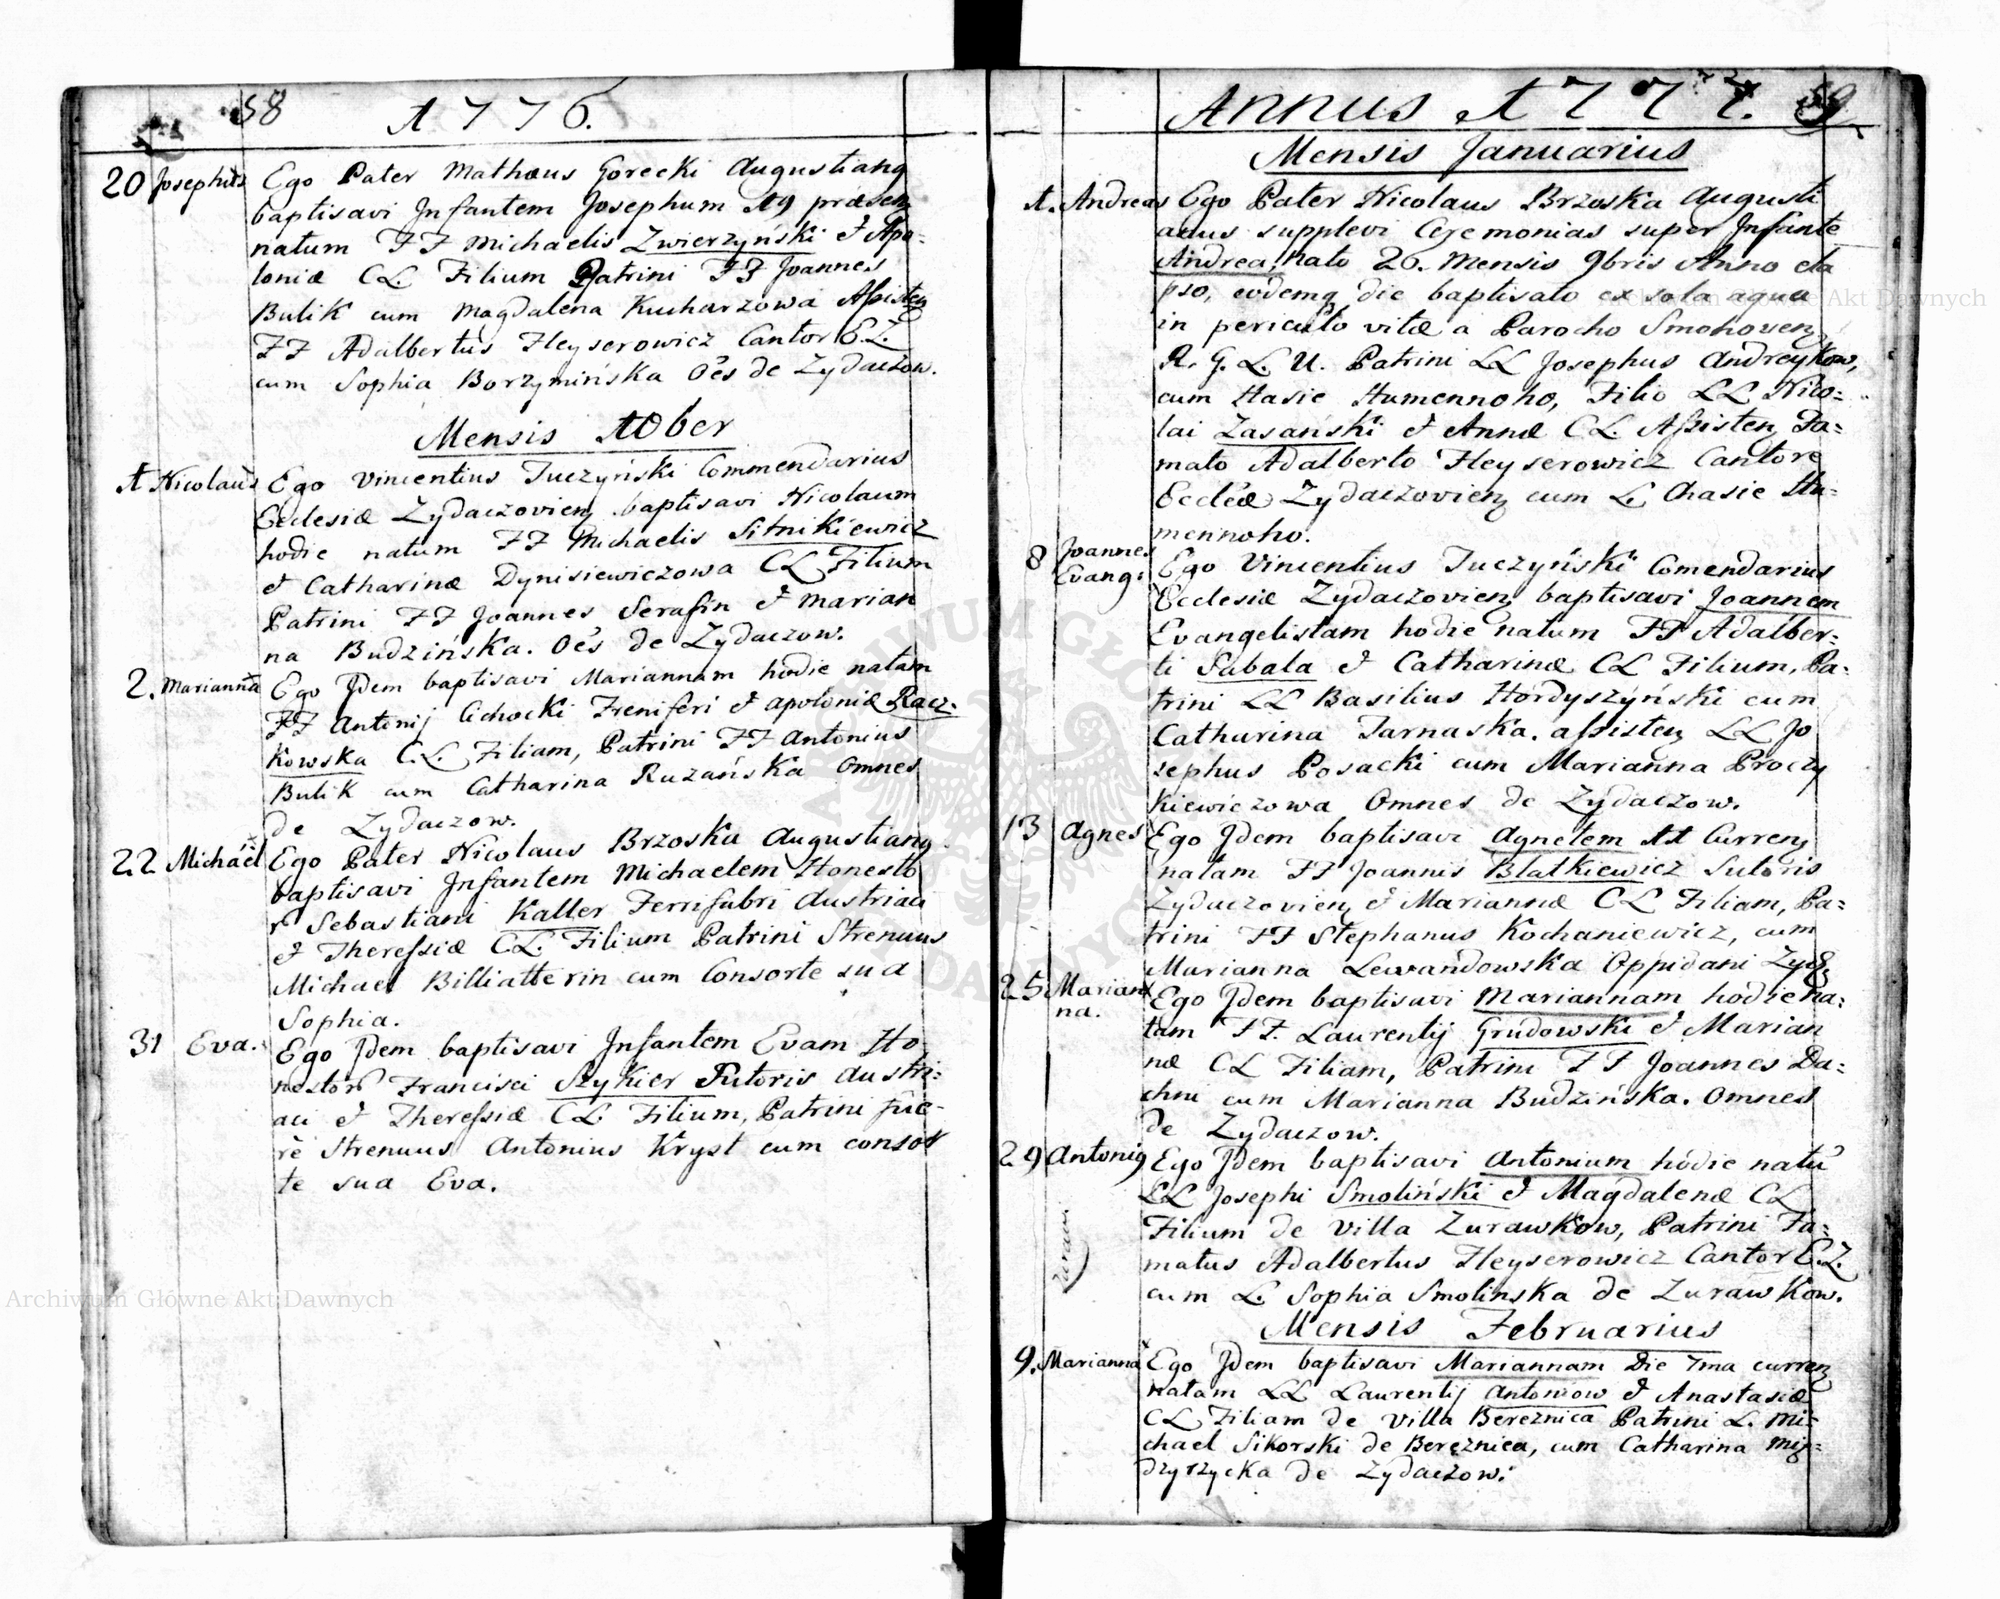 58
1776.
20 Josephus Ego Pater Mathæus Gorecki Augustiang
baptisavi Jnfantem Josephum 19 præsenz
natum FF Michaelis Zwierzyński & Apo=
loniæ CL. Filium Patrini FF Joannes
Bulik cum Magdalena Kucharzowa Assistenz
FF Adalbertus Heyserowicz Cantor E.Z.
cum Sophia Borzymińska Oes de Zydaczow.
Mensis 10ber
1 Nicolaus Ego Vincentius Tuczyński Commendarius
Ecclesiæ Zydaczovienz baptisavi Nicolaum
hodie natum FF Michaelis Sitnikiewicz
& Catharinæ Dynisiewiczowa CL Filium
Patrini FF Joannes Serafin & Marian
na Budzińska. Oes de Zydaczow.
2. Marianna Ego Jdem baptisavi Mariannam hodie natam
FF Antonij Cichocki Freniferi & Apoloniæ Racz=
kowska C.L. Filiam, Patrini FF Antonius
Bulik cum Catharina Ruzańska Omnes
de Zydaczow.
22 Michaël Ego Pater Nicolaus Brzoska Augustiang
baptisavi Jnfantem Michaelem Honesto
r Sebastiani Kaller Ferrifabri Austriaci
& Theressiæ CL. Filium Patrini Strenuus
Michael Billiatterin cum Consorte sua
Sophia.
31 Eva. Ego Jdem baptisavi Jnfantem Evam Ho
nestor Francisci Szykier Sutoris Austri=
aci & Theressiæ CL. Filium, Patrini fue=
rè Strenuus Antonius Kryst cum consor
te sua Eva.
Annus 1777. 59
Mensis Januarius
1. Andreas Ego Pater Nicolaus Brzoska Augusti
anus supplevi Ceremonias super Jnfante
Andrea, nato 26. Mensis 9bris Anno ela
pso, eodemq die baptisato ex sola aqua
in periculo vitæ a Parocho Smohovenz
R. G. L. U. Patrini LL Josephus Andreykow,
cum Hasie Humennoho, Filio LL Nico=
lai Zasański & Annæ CL. Assistenz Fa=
mato Adalberto Heyserowicz Cantore
Eccleæ Zydaczovienz cum L. Chasie Hu=
mennoho.
8 Joannes Evang: Ego Vincentius Tuczyński Comendarius
Ecclesiæ Zydaczovienz baptisavi Joannem
Evangelistam hodie natum FF Adalber=
ti Sabala & Catharinæ CL Filium, Pa=
trini LL Basilius Hordyszyński cum
Catharina Tarnaska. assistenz LL Jo
sephus Posacki cum Marianna Proczy
kiewiczowa Omnes de Zydaczow.
13 Agnes Ego Jdem baptisavi Agnetem 11 Currenz
natam FF Joannis Blatkiewicz Sutoris
Zydaczovienz & Mariannæ CL Filiam, Pa=
trini FF Stephanus Kochaniewicz, cum
Marianna Lewandowska Oppidani Zyd
25 Marian na. Ego Jdem baptisavi Mariannam hodie na=
tam FF. Laurentij Grudowski & Marian
næ CL Filiam, Patrini FF Joannes Da=
chni cum Marianna Budzińska. Omnes
de Zydaczow.
29 Antonig Ego Jdem baptisavi Antonium hodie natu
LL Josephi Smoliński & Magdalenæ CL
Filium de Villa Zurawkow, Patrini Fa=
matus Adalbertus Heyserowicz Cantor E.Z.
cum L. Sophia Smolinska de Zurawkow.
Mensis Februarius
9. Marianna Ego Jdem baptisavi Mariannam Die 7ma currenz
natam LL Laurentij Antoniow & Anastasiæ
CL Filiam de Villa Bereznica Patrini L. Mi=
chael Sikorski de Bereznica, cum Catharina Mię=
dzyrzycka de Zydaczow.
Archiwum Główne Akt Dawnych
Archiwum Główne Akt Dawnych
ARCHIWUM GŁÓWNE AKT DAWNYCH